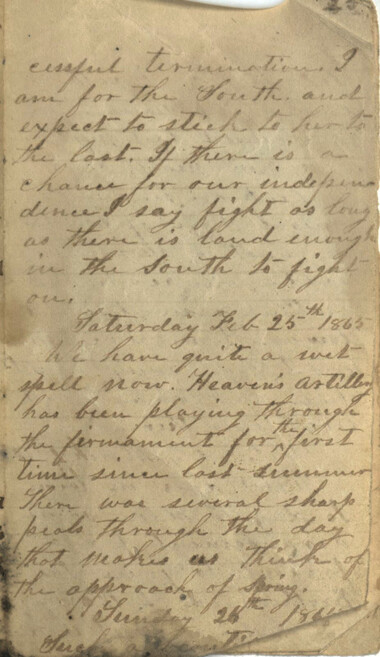 25
cessful termination. I
am for the South. and
expect to stick to her to
the last. If there is a
chance for our indepen
dence I say fight as long
as there is land enough
in the South to fight
on.
Saturday Feb 25th 1865
We have quite a wet
spell now. Heaven's Artillery
has been playing through
the firmament for the first
time since last summer
There was several sharp
peals through the day
that makes us think of
the approach of spring.
Sunday 26th 1865
Such a